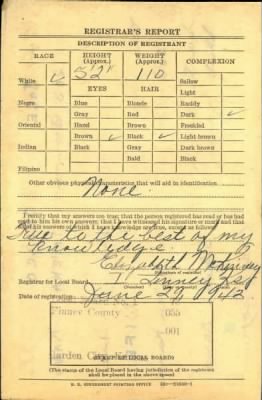 REGISTRAR'S REPORT
DESCRIPTION OF REGISTRANT
RACE HEIGHT (Approx.) WEIGHT (Approx.) COMPLEXION
5'2" 110 Sallow
White ✓ Light
EYES HAIR Ruddy
Negro Blue Blonde Dark ✓
Gray Red Freckled
Oriental Hazel Brown Light brown
Brown ✓ Black ✓ Dark brown
Indian Black Gray Black
Bald
Filipino
Other obvious physical characteristics that will aid in identification
None
I certify that my answers are true; that the person registered has read or has had
read to him his own answers; that I have witnessed his signature or mark and
that all of his answers of which I have knowledge are true, except as follows:
True to the best of my
knowledge.
Elizabeth
(Signature of registrar)
Registrar for Local Board 1 Finney
(Number) (City or county) (State)
Date of registration June 1942
Finney County 055
001
Garden City
(STAMP OF LOCAL BOARD)
(The stamp of the Local Board having jurisdiction of the registrant
shall be placed in the above space)
U. S. GOVERNMENT PRINTING OFFICE